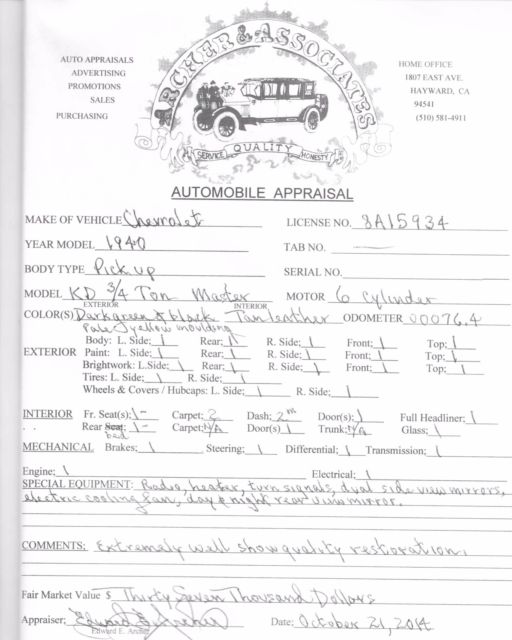 ARCHER & ASSOCIATES
AUTO APPRAISALS
ADVERTISING
PROMOTIONS
SALES
PURCHASING
HOME OFFICE
1807 EAST AVE.
HAYWARD, CA
94541
(510) 581-4911
SERVICE QUALITY HONESTY
AUTOMOBILE APPRAISAL
MAKE OF VEHICLE Chevrolet LICENSE NO. 8A15934
YEAR MODEL 1940 TAB NO. —
BODY TYPE Pick up SERIAL NO.
MODEL KD 3/4 Ton Master MOTOR 6 Cylinder
EXTERIOR INTERIOR
COLOR(S) Dark green & black Tan leather ODOMETER 00076.4
Pale yellow moulding
Body: L. Side; 1 Rear; 1 R. Side; 1 Front; 1 Top; 1
EXTERIOR Paint: L. Side; 1 Rear; 1 R. Side; 1 Front; 1 Top; 1
Brightwork: L. Side; 1 Rear; 1 R. Side; 1 Front; 1 Top; 1
Tires: L. Side; 1 R. Side; 1
Wheels & Covers / Hubcaps: L. Side; 1 R. Side; 1
INTERIOR Fr. Seat(s); 1- Carpet; 2 Dash; 2m Door(s); 1 Full Headliner; 1
Rear Seat; bed 1- Carpet; N/A Door(s) 1 Trunk; N/A Glass; 1
MECHANICAL Brakes; 1 Steering; 1 Differential; 1 Transmission; 1
Engine; 1 Electrical; 1
SPECIAL EQUIPMENT: Radio, heater, turn signals, dual side view mirrors,
electric cooling fan, day & night rear view mirror.
COMMENTS: Extremely well show quality restoration.
Fair Market Value $ Thirty Seven Thousand Dollars
Appraiser; Edward E. Archer Date; October 21, 2014
Edward E. Archer